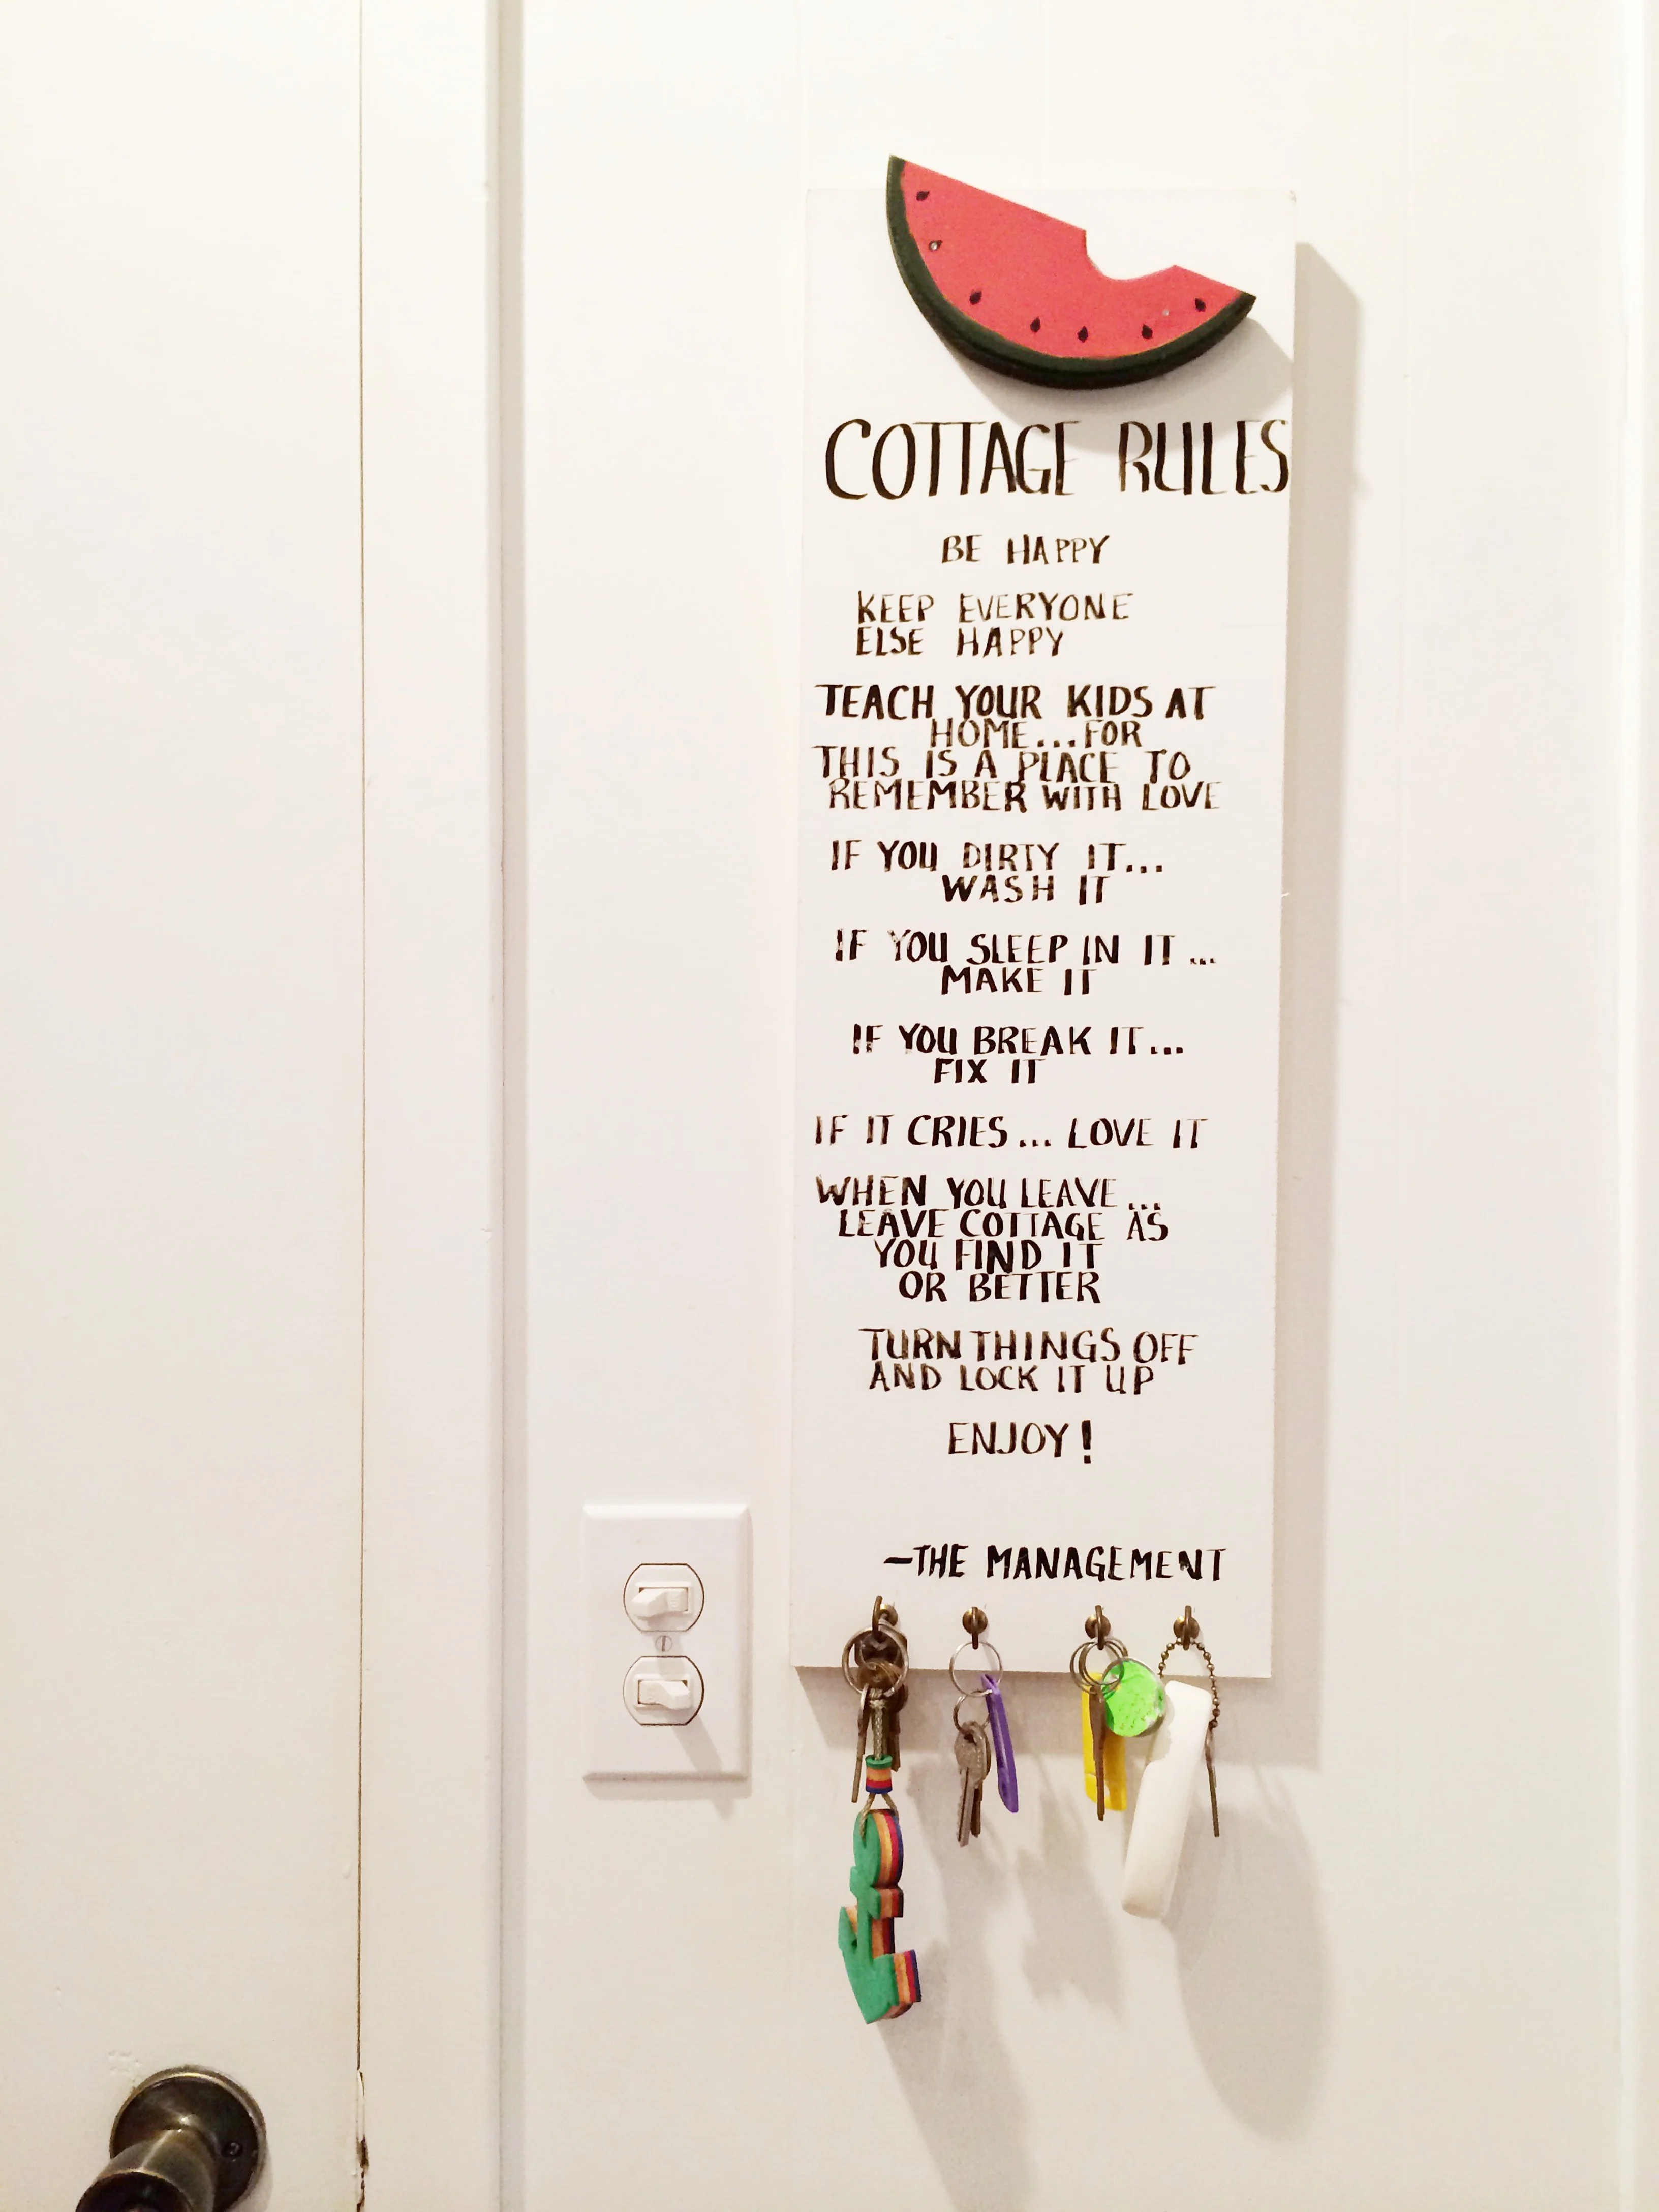 COTTAGE RULES
BE HAPPY
KEEP EVERYONE
ELSE HAPPY
TEACH YOUR KIDS AT
HOME...FOR
THIS IS A PLACE TO
REMEMBER WITH LOVE
IF YOU DIRTY IT...
WASH IT
IF YOU SLEEP IN IT...
MAKE IT
IF YOU BREAK IT...
FIX IT
IF IT CRIES... LOVE IT
WHEN YOU LEAVE...
LEAVE COTTAGE AS
YOU FIND IT
OR BETTER
TURN THINGS OFF
AND LOCK IT UP
ENJOY!
-THE MANAGEMENT